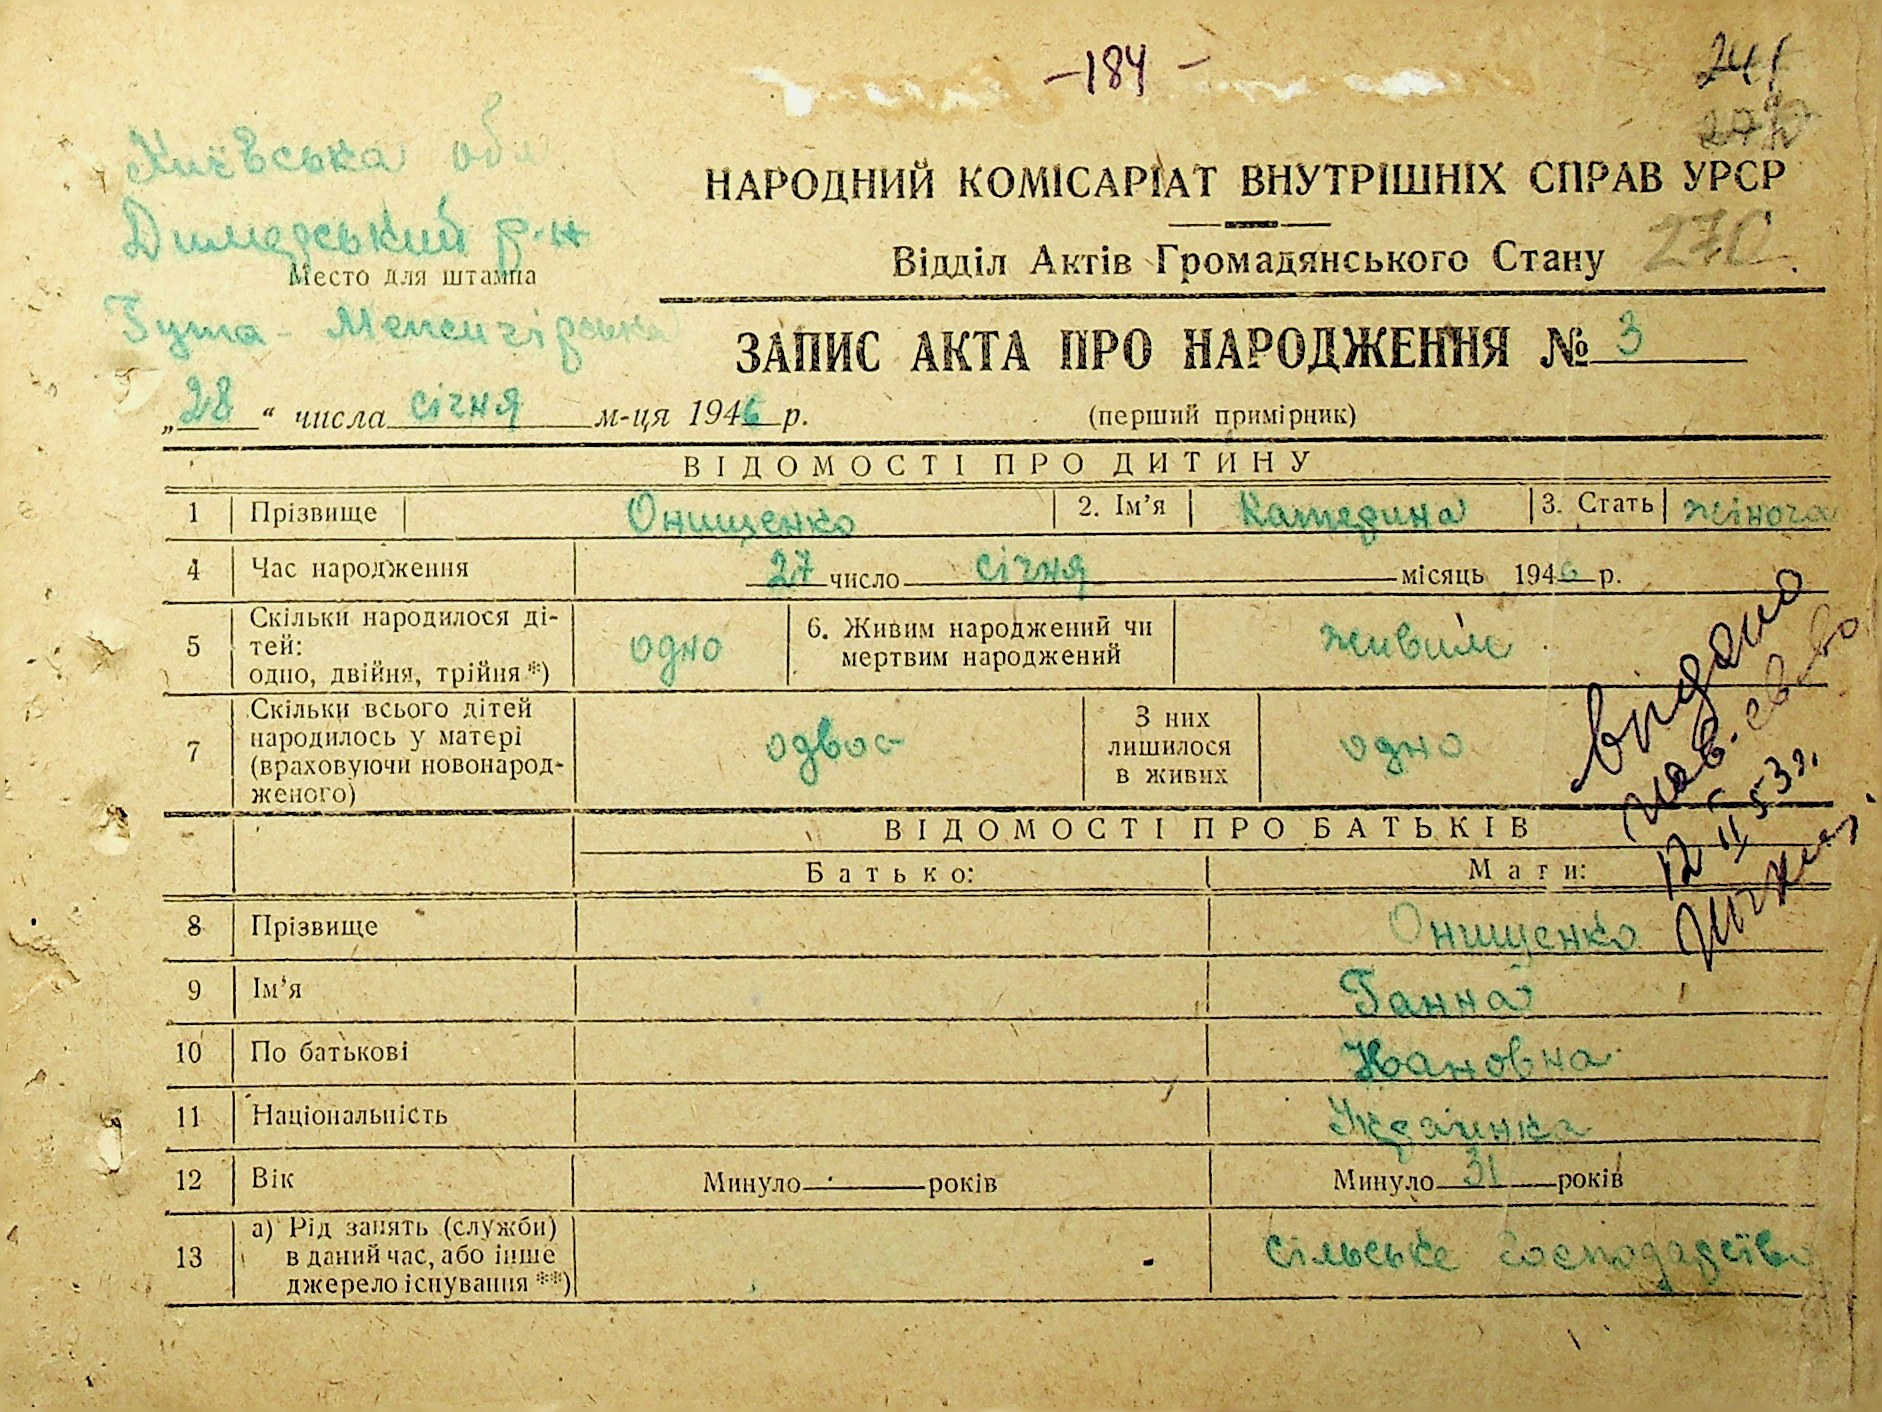 -184-
241
Київська обл
Димерський р-н
Место для штампа
Гута-Межигірська
НАРОДНИЙ КОМІСАРІАТ ВНУТРІШНІХ СПРАВ УРСР
Відділ Актів Громадянського Стану 270
ЗАПИС АКТА ПРО НАРОДЖЕННЯ № 3
„28“ числа січня м-ця 1946 р. (перший примірник)
ВІДОМОСТІ ПРО ДИТИНУ
1 Прізвище Онищенко 2. Ім'я Катерина 3. Стать жіноча
4 Час народження 27 число січня місяць 1946 р.
5 Скільки народилося ді-
тей:
одно, двійня, трійня *) одно 6. Живим народжений чи
мертвим народжений живим
7 Скільки всього дітей
народилось у матері
(враховуючи новонарод-
женого) одвос З них
лишилося
в живих одно
видано
12 II 53 г.
ВІДОМОСТІ ПРО БАТЬКІВ
Батько: Мати:
8 Прізвище Онищенко
9 Ім'я Ганна
10 По батькові Івановна
11 Національність Українка
12 Вік Минуло років Минуло 31 років
13 а) Рід занять (служби)
в даний час, або інше
джерело існування **) сільське господарство